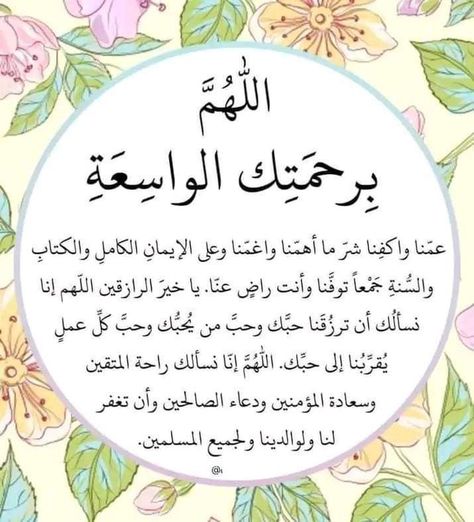 اللّٰهُمَّ
بِرحمَتِك الواسِعَةِ
عمّنا واكفِنا شرّ ما أهمّنا واغمّنا وعلى الإيمانِ الكاملِ والكتابِ
والسُّنةِ جَمْعاً توفَّنا وأنت راضٍ عنّا. يا خيرَ الرازقين اللّهم إنا
نسألُك أن ترزُقَنا حبَّك وحبَّ من يُحبُّك وحبَّ كلِّ عملٍ
يُقرِّبُنا إلى حبِّك. اللّٰهُمَّ إنّا نسألك راحة المتقين
وسعادة المؤمنين ودعاء الصالحين وأن تغفر
لنا ولوالدينا ولجميع المسلمين.